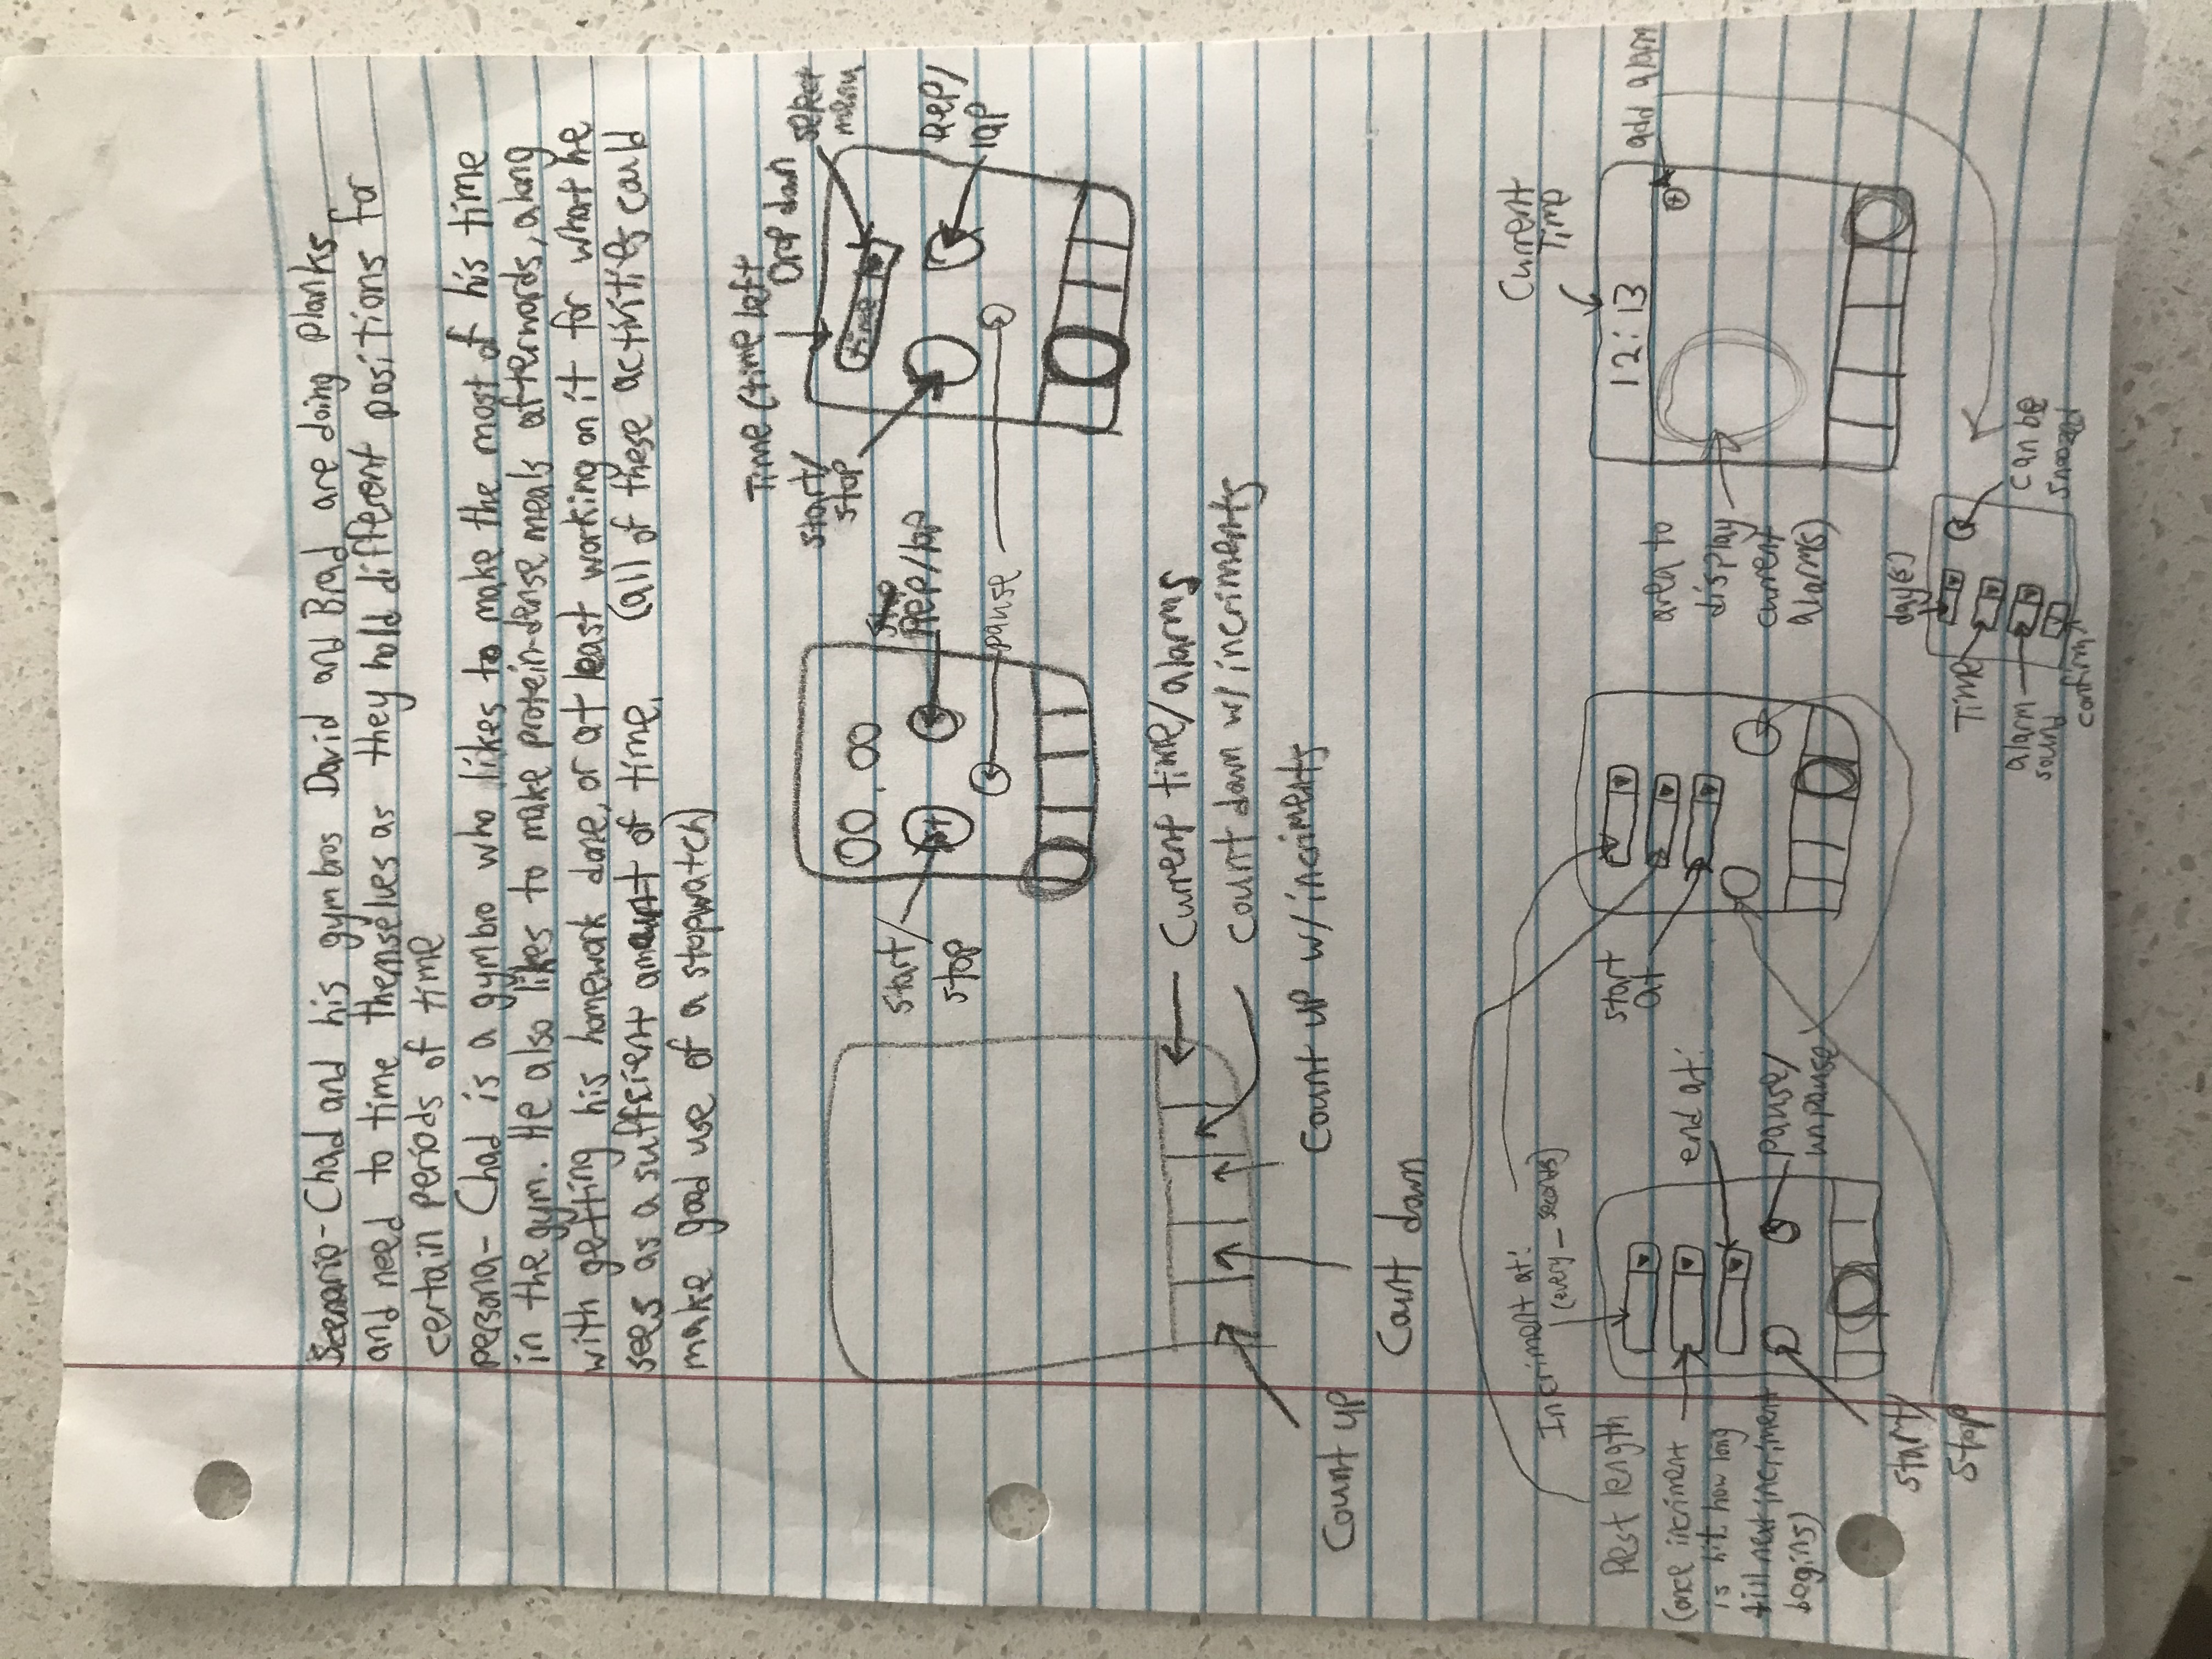 Scenario- Chad and his gymbros David and Brad are doing planks
and need to time themselves as they hold different positions for
certain periods of time
persona- Chad is a gymbro who likes to make the most of his time
in the gym. He also likes to make protein-dense meals afterwards, along
with getting his homework done, or at least working on it for what he
sees as a suffient amount of time. (all of these activities could
make good use of a stopwatch)
Time (time left
Drop down
select
menu
start/
stop
time
Rep/
lap
00.00
start/
stop
st
Rep/lap
pause
Current time/alarms
Count down w/ incriments
Count up w/ incriments
Count up
Count down
Incriment at:
(every _ seconds)
Rest length
(once incriment
is hit how long
till next incriment
begins)
end at:
pause/
unpause
start/
stop
start
at
Current
Time
12:13
add alarm
area to
display
current
alarm(s)
day(s)
Time
alarm
sound
confirm
can be
snoozed